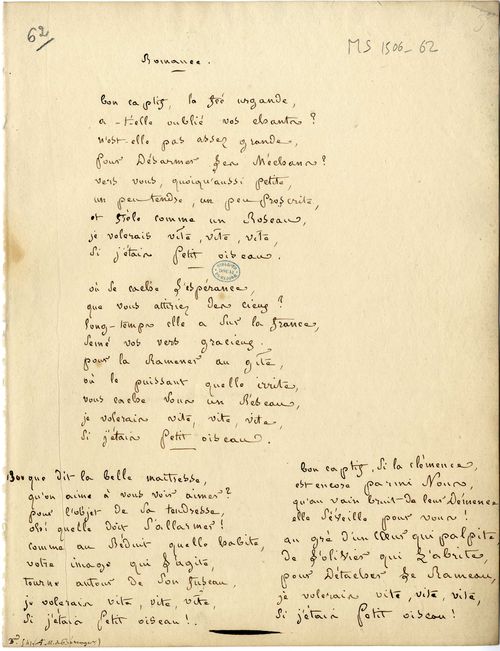 62
MS 1506-62
Romance.
bon captif, la fée urgande,
a-t-elle oublié vos chants ?
n'est-elle pas assez grande,
pour Désarmer les Méchans ?
vers vous, quoiqu'aussi petite,
un peu tendre, un peu proscrite,
et frêle comme un Roseau,
je volerais vite, vite, vite,
Si j'étais Petit oiseau.
où se cache l'espérance,
que vous attiriez des cieux ?
long-temps elle a sur la france,
semé vos vers gracieux.
pour la Ramener au gîte,
où le puissant quelle irrite,
vous cache sous un Réseau,
je volerais vite, vite, vite,
Si j'étais Petit oiseau.
que dit la belle maîtresse,
qu'on aime à vous voir aimer ?
pour l'objet de sa tendresse,
oh! quelle doit S'allarmer !
comme au Réduit quelle habite,
votre image qui l'agite,
tourne autour de Son fuseau,
je volerais vite, vite, vite,
Si j'étais Petit oiseau !.
bon captif, Si la clémence,
est encore parmi Nous,
qu'au vain bruit de leur Démence
elle S'éveille pour vous !
au gré d'un Cœur qui palpite
de l'olivier qui l'abrite,
pour Détacher le Rameau,
je volerais vite, vite, vite,
Si j'étais Petit oiseau !.